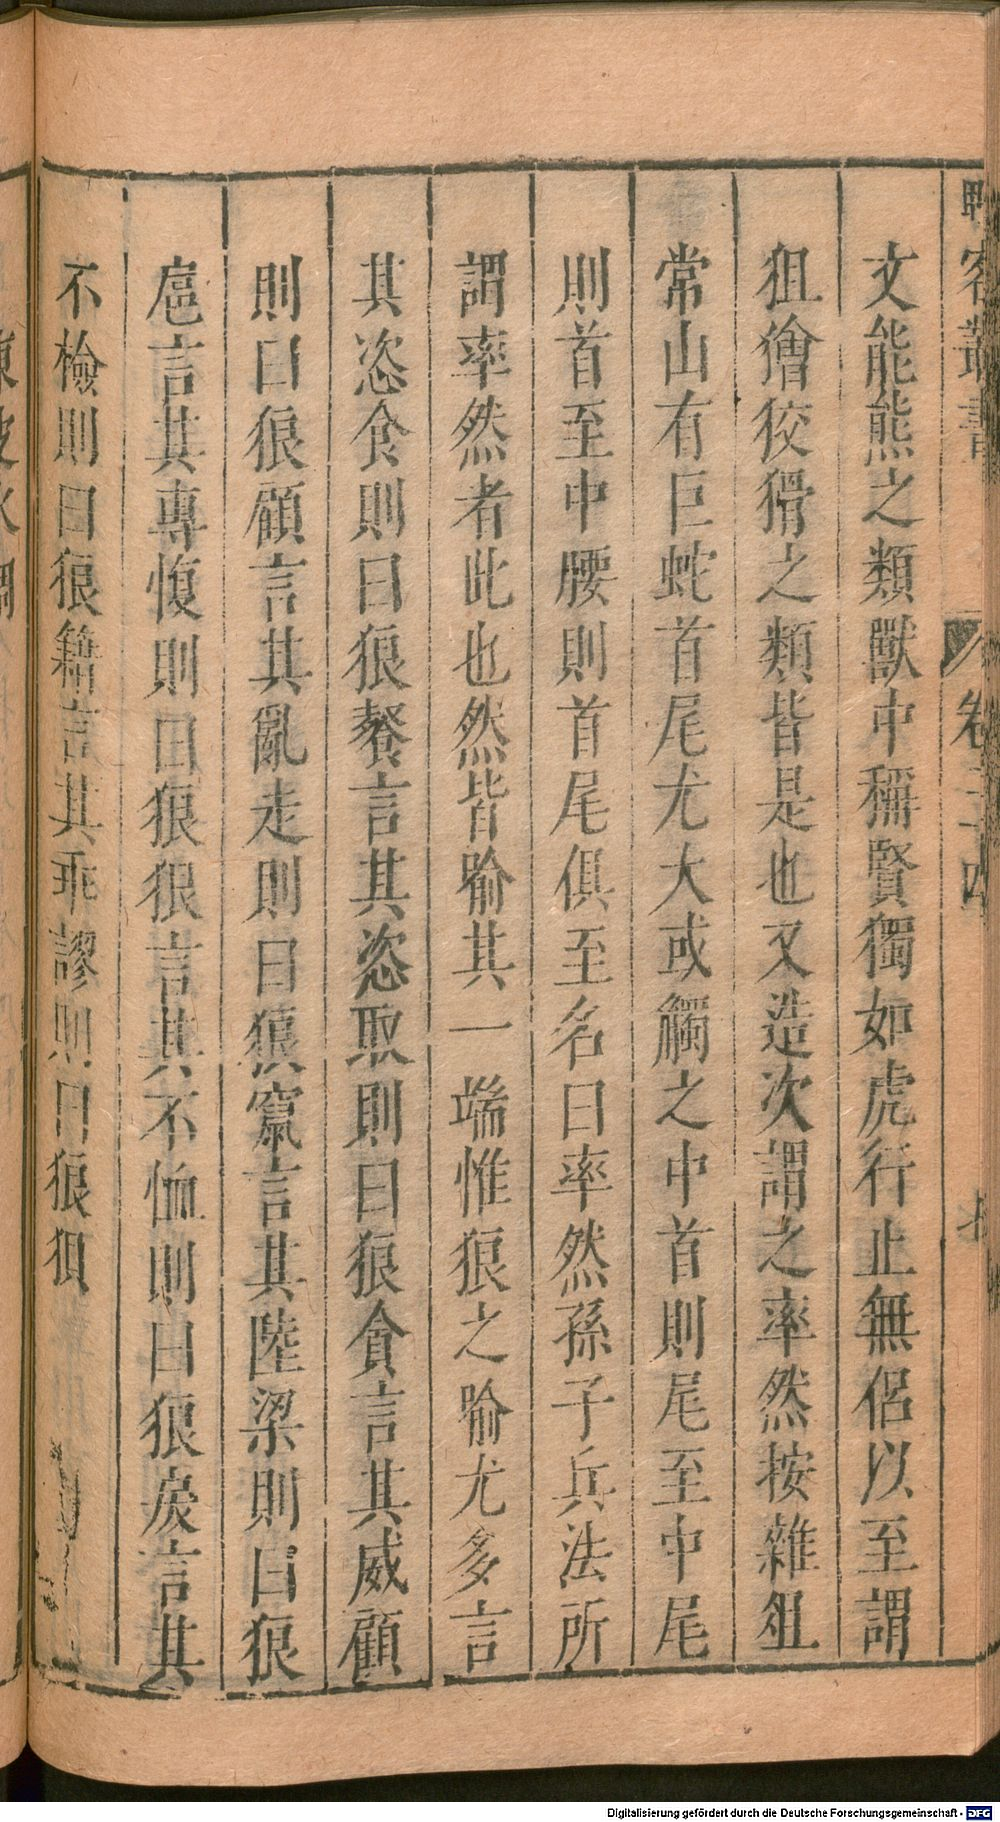 客叢書 卷二十四
文能熊之類獸中稱賢獨如虎行止無侶以至謂
狙獪狡猾之類皆是也又造次謂之率然按雜俎
常山有巨蛇首尾尤大或觸之中首則尾至中尾
則首至中腰則首尾俱至名曰率然孫子兵法所
謂率然者此也然皆喻其一端惟狼之喻尤多言
其恣食則曰狼餐言其恣取則曰狼貪言其威顧
則曰狼顧言其亂走則曰獚竄言其陸梁則曰狼
扈言其專愎則曰狼狠言其不恤則曰狼戾言其
不檢則曰狼籍言其乖謬則曰狼狽
Digitalisierung gefördert durch die Deutsche Forschungsgemeinschaft - DFG